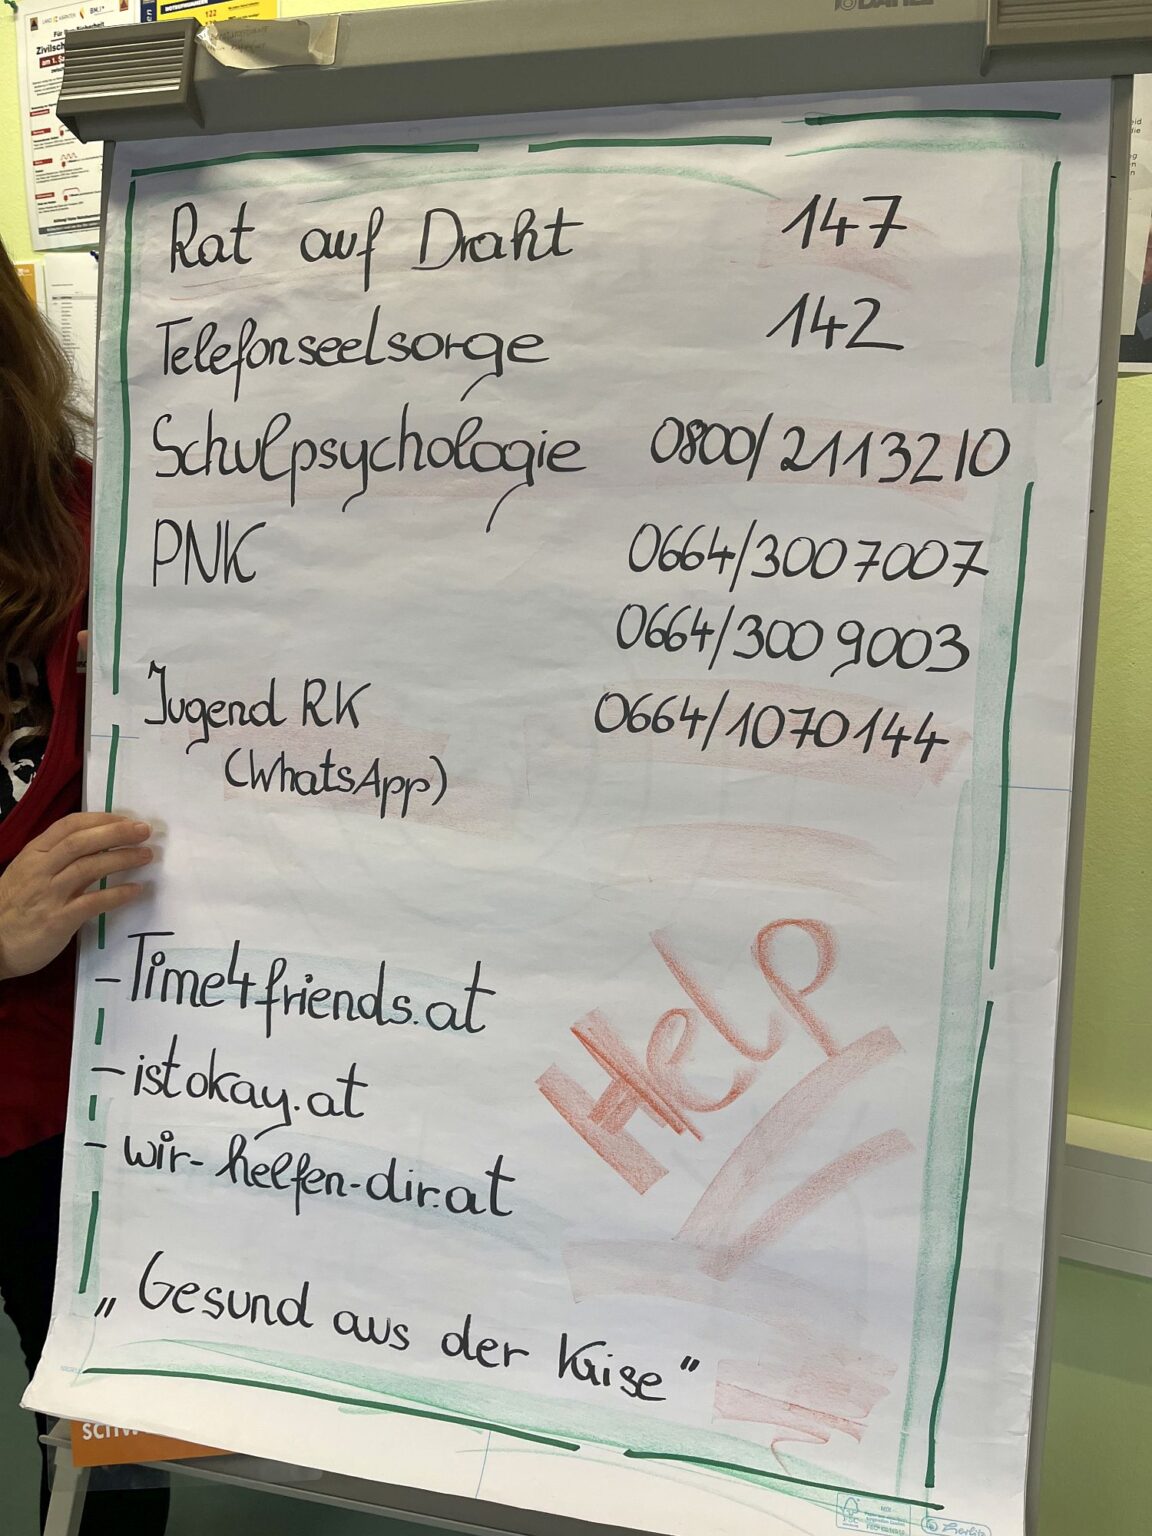 122
Rat auf Draht 147
Telefonseelsorge 142
Schulpsychologie 0800/2113210
PNK 0664/3007007
0664/3009003
Jugend RK 0664/1070144
(WhatsApp)
- Time4friends.at
- istokay.at
- wir-helfen-dir.at
Help
„Gesund aus der Krise"